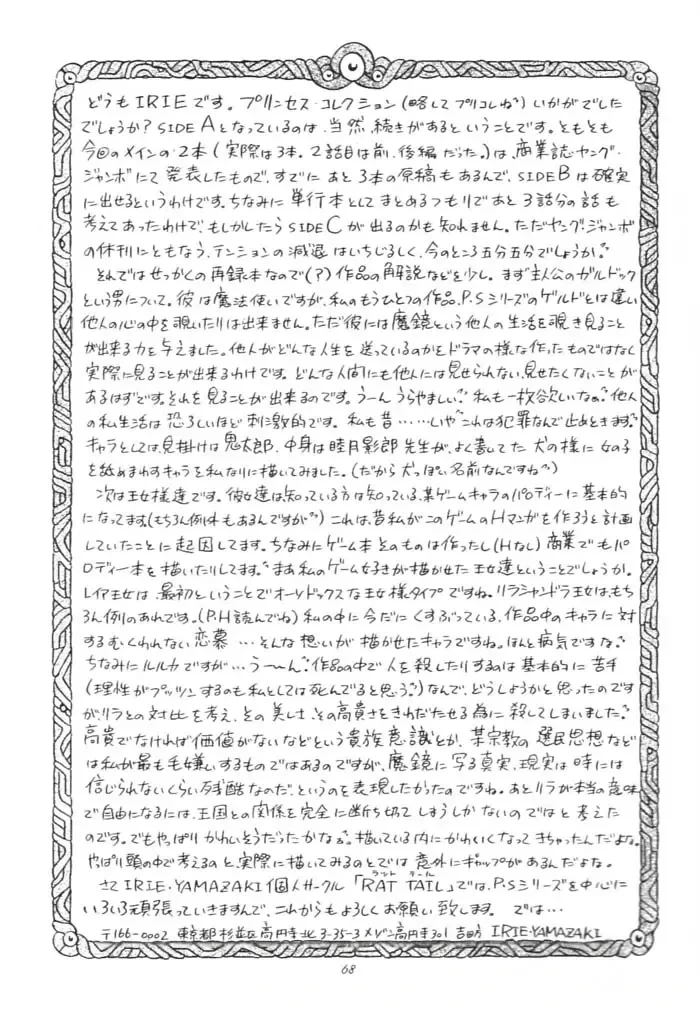 どうもIRIEです。プリンセス・コレクション(略してプリコレね)いかがでした
でしょうか?SIDE Aとなっているのは、当然、続きがあるということです。ともとも
今回のメインの2本(実際は3本。2話目は前、後編だった。)は、商業誌・ヤング・
ジャンボにて発表したもので、すでにあと3本の原稿もあるんで、SIDE Bは確実
に出せるというわけです。ちなみに単行本としてまとめるつもりであと3話分の話も
考えてあったわけで、もしかしたらSIDE Cが出るのかも知れません。ただヤング・ジャンボ
の休刊にともなう、テンションの減退はいちじるしく、今のところ五分五分でしょうか。
それではせっかくの再録本なので(?)作品の解説などを少し。まず主人公のガルドック
という男について。彼は魔法使いですが、私のもうひとつの作品、P.Sシリーズのゲルドとは違い
他人の心の中を覗いたりは出来ません。ただ彼には魔鏡という他人の生活を覗き見ること
が出来る力を与えました。他人がどんな人生を送っているのかをドラマの様な作ったものではなく
実際に見ることが出来るわけです。どんな人間にも他人には見せられない、見せたくないことが
あるはずです。それを見ることが出来るのです。うーんうらやましい。私も一枚欲しいなぁ。他人
の私生活は恐ろしいほど刺激的です。私も昔……いや これは犯罪なんで止めときます。
キャラとしては、見掛けは鬼太郎、中身は睦月影郎先生が、よく書いてた犬の様に女の子
を舐めまわすキャラを私なりに描いてみました。(だから犬っぽい名前なんですね)
次は王女様達です。彼女達は知っている方は知っている、某ゲームキャラのパロディーに基本的
になってます。(もちろん例外もあるんですが)これは、昔私がこのゲームのHマンガを作ろうと計画
していたことに起因してます。ちなみにゲーム本そのものは作ったし(Hなし)商業でもパ
ロディー本を描いたりしてます。まあ私のゲーム好きが描かせた王女達ということでしょうか。
レイア王女は最初ということでオーソドックスな王女様タイプですね。リラシャンドラ王女は、もち
ろん例のあれです。(P.H読んでね)私の中に今だにくすぶっている、作品中のキャラに対
するむくわれない恋慕…そんな想いが描かせたキャラですね。ほんと病気ですな。
ちなみにルルカですが…う〜〜ん。作品の中で人を殺したりするのは基本的に苦手
(理性がプッツンするのも私としては死んでると思う。)なんで、どうしようかと思ったのです
がリラとの対比を考え、その美しさ、その高貴さをきわだたせる為に殺してしまいました。
高貴でなければ価値がないなどという貴族意識とか、某宗教の選民思想など
は私が最も毛嫌いするものではあるのですが、魔鏡に写る真実、現実は時には
信じられないくらい残酷なのだ、というのを表現したかったのですね。あとリラが本当の意味
で自由になるには、王国との関係を完全に断ち切ってしまうしかないのではと考えた
のです。でもやっぱりかわいそうだったかなぁ。描いている内にかわいくなってきちゃったんだよな。
やっぱり頭の中で考えるのと、実際に描いてみるのとでは意外にギャップがあるんだよな。
さてIRIE・YAMAZAKI個人サークル「RAT TAIL」では、P.Sシリーズを中心に
ラット テール
いろいろ頑張っていきますんで、これからもよろしくお願い致します。では…
〒166-0002 東京都杉並区高円寺北3-35-3メゾン高円寺301 吉田方 IRIE・YAMAZAKI
68